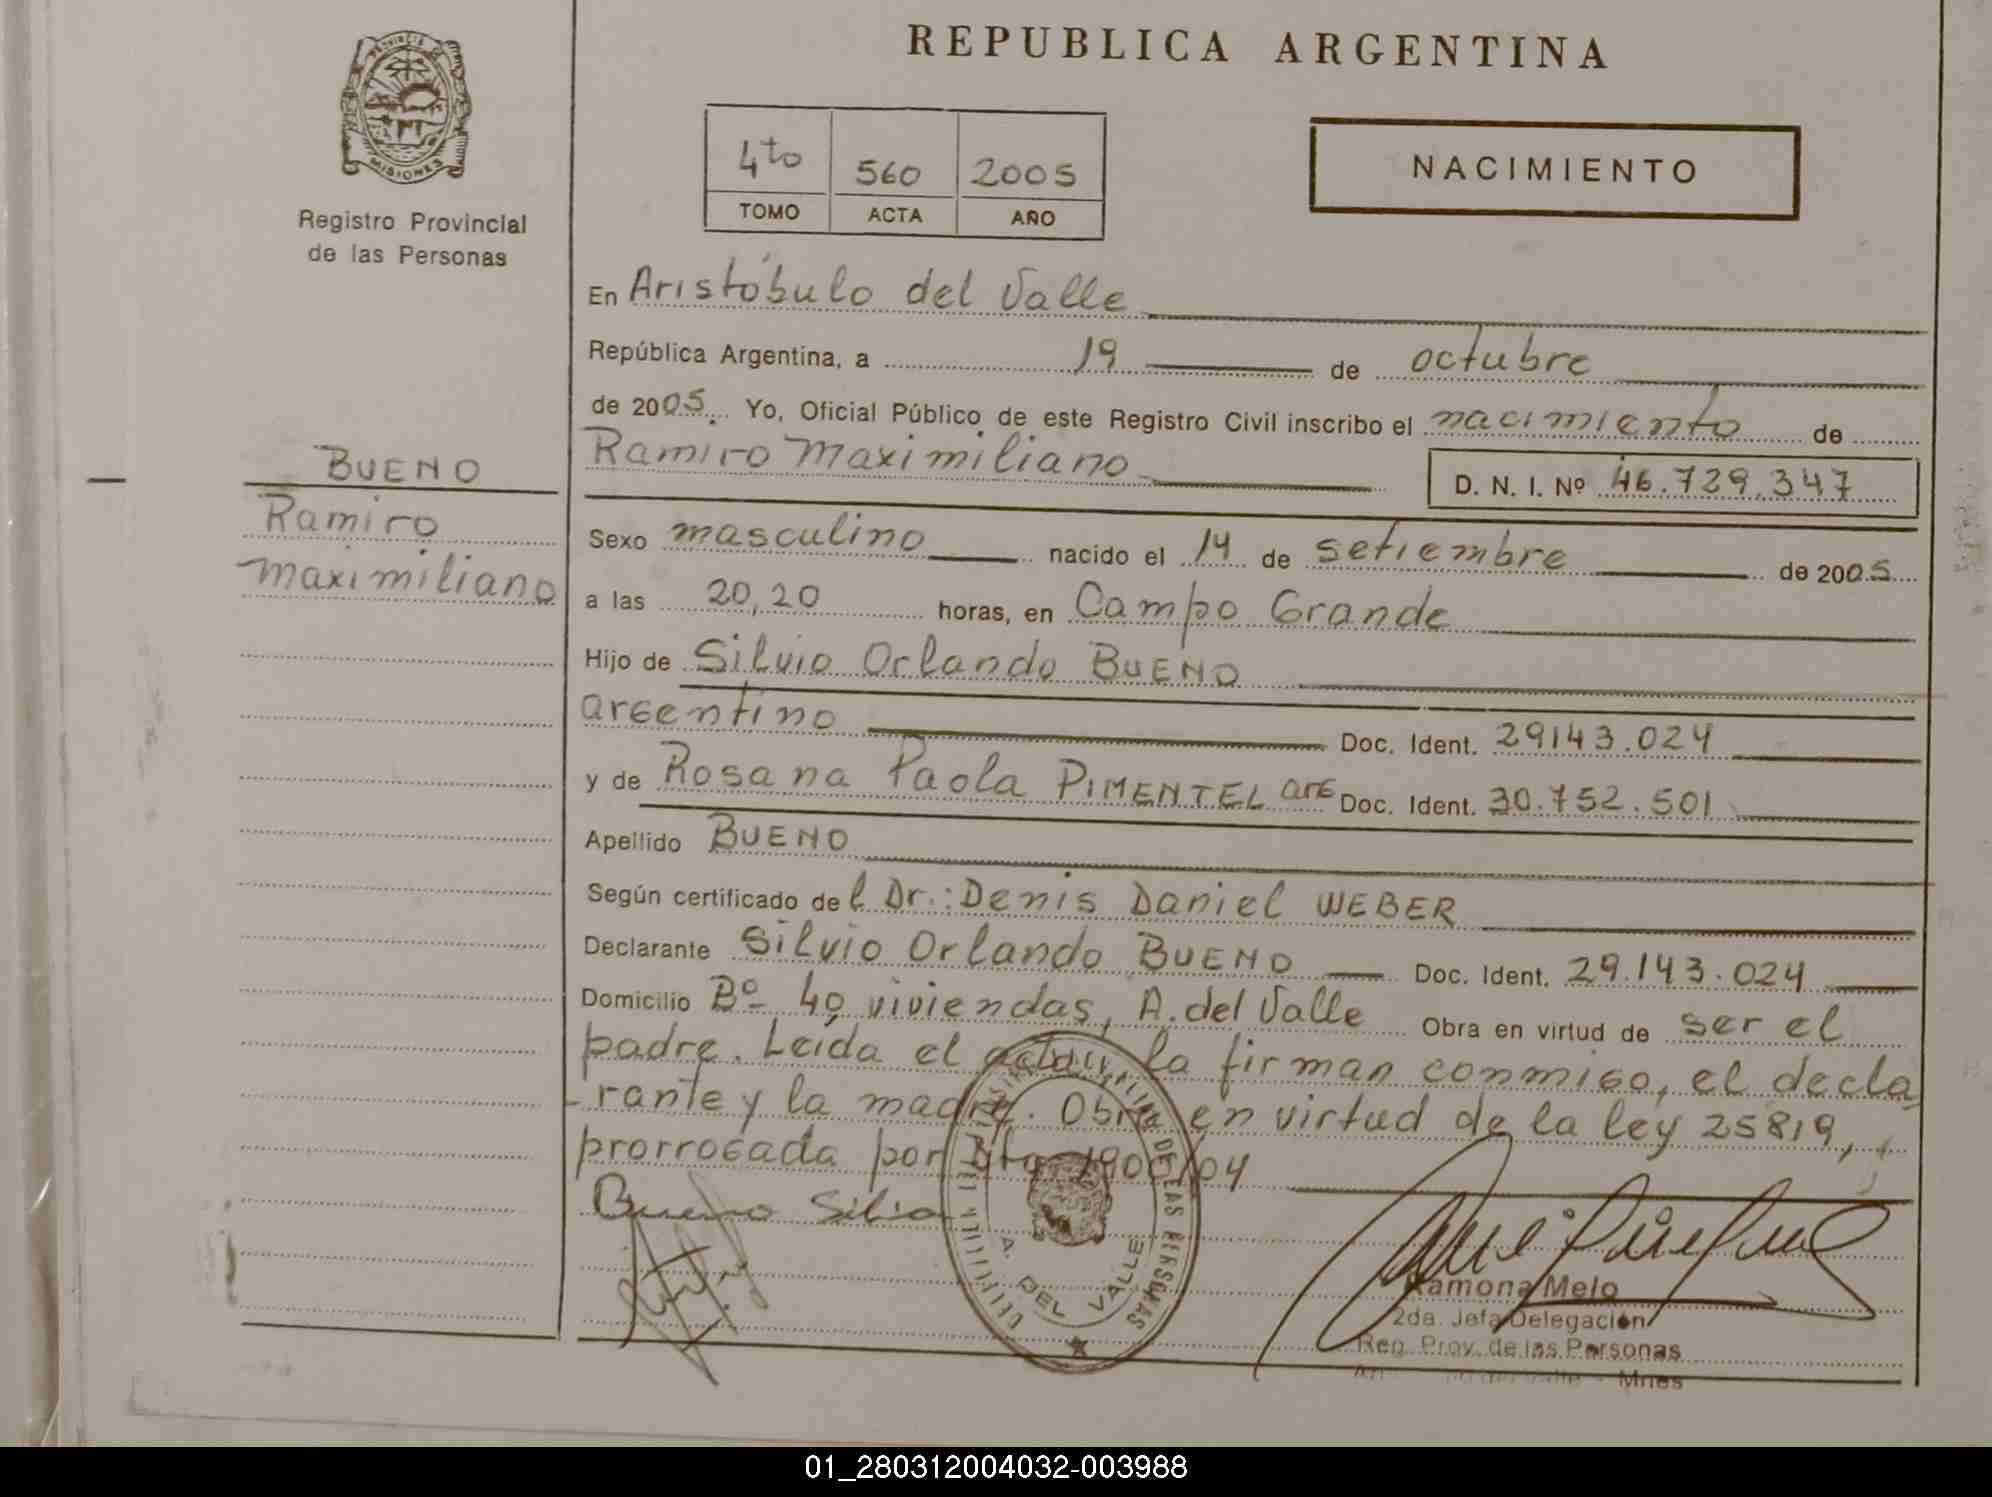 REPUBLICA ARGENTINA
PROVINCIA DE
MISIONES
Registro Provincial
de las Personas
4to 560 2005
TOMO ACTA AÑO
NACIMIENTO
En Aristóbulo del Valle
República Argentina, a 19 de octubre
de 2005. Yo, Oficial Público de este Registro Civil inscribo el nacimiento de
Ramiro Maximiliano D. N. I. Nº 46.729.347
BUENO
Ramiro
Maximiliano
Sexo masculino nacido el 14 de setiembre de 2005
a las 20,20 horas, en Campo Grande
Hijo de Silvio Orlando BUENO
argentino Doc. Ident. 29143.024
y de Rosana Paola PIMENTEL arg Doc. Ident. 30.752.501
Apellido BUENO
Según certificado del Dr.: Denis Daniel WEBER
Declarante Silvio Orlando BUENO Doc. Ident. 29.143.024
Domicilio Bº 40 viviendas, A. del Valle Obra en virtud de ser el
padre. Leída el acta, la firman conmigo, el decla
-rante y la madre. Obra en virtud de la ley 25819,
prorrogada por Dto 1900/04
Bueno Silvio
DE LAS PERSONAS
A. DEL VALLE
Ramona Melo
2da. Jefa Delegación
Reg. Prov. de las Personas
Valle - Mnes
01_280312004032-003988